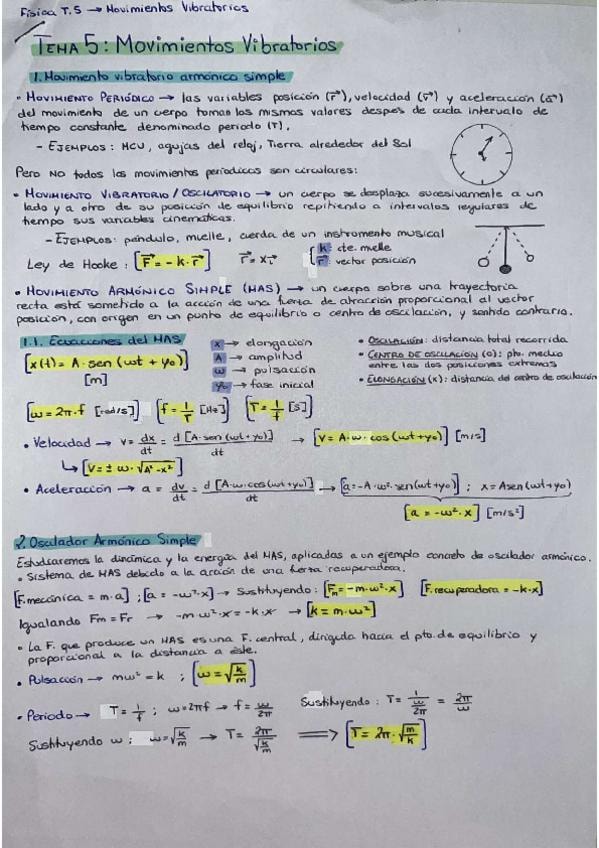 Física T.5 → Movimientos Vibratorios
TEMA 5: Movimientos Vibratorios
1. Movimiento vibratorio armónico simple
• MOVIMIENTO PERIÓDICO → las variables posición (r⃗), velocidad (v⃗) y aceleración (a⃗)
del movimiento de un cuerpo toman los mismos valores después de cada intervalo de
tiempo constante denominado periodo (T).
- EJEMPLOS: MCU, agujas del reloj, Tierra alrededor del Sol
Pero NO todos los movimientos periódicos son circulares:
• MOVIMIENTO VIBRATORIO / OSCILATORIO → un cuerpo se desplaza sucesivamente a un
lado y a otro de su posición de equilibrio repitiendo a intervalos regulares de
tiempo sus variables cinemáticas.
- EJEMPLOS: péndulo, muelle, cuerda de un instrumento musical
Ley de Hooke: [F⃗ = -k·r⃗] r⃗ = x i⃗ { k: cte. muelle
r⃗: vector posición
• MOVIMIENTO ARMÓNICO SIMPLE (MAS) → un cuerpo sobre una trayectoria
recta está sometido a la acción de una fuerza de atracción proporcional al vector
posición, con origen en un punto de equilibrio o centro de oscilación, y sentido contrario.
1.1. Ecuaciones del MAS
[x(t) = A·sen(ωt + φ₀)]
[m]
x → elongación
A → amplitud
ω → pulsación
φ₀ → fase inicial
• OSCILACIÓN: distancia total recorrida
• CENTRO DE OSCILACIÓN (O): pto. medio
entre las dos posiciones extremas
• ELONGACIÓN (x): distancia del centro de oscilación
[ω = 2π·f [rad/s]] [f = 1/T [Hz]] [T = 1/f [s]]
• Velocidad → v = dx/dt = d[A·sen(ωt+φ₀)]/dt → [v = A·ω·cos(ωt+φ₀)] [m/s]
↳ [v = ± ω·√(A²-x²)]
• Aceleración → a = dv/dt = d[A·ω·cos(ωt+φ₀)]/dt → [a = -A·ω²·sen(ωt+φ₀)] ; x = A sen(ωt+φ₀)
[a = -ω²·x] [m/s²]
2. Oscilador Armónico Simple
Estudiaremos la dinámica y la energía del MAS, aplicadas a un ejemplo concreto de oscilador armónico.
• Sistema de MAS debido a la acción de una fuerza recuperadora.
[F. mecánica = m·a] ; [a = -ω²·x] → Sustituyendo: [Fm = -m·ω²·x] [F. recuperadora = -k·x]
Igualando Fm = Fr → -m·ω²·x = -k·x → [k = m·ω²]
• La F. que produce un MAS es una F. central, dirigida hacia el pto. de equilibrio y
proporcional a la distancia a éste.
• Pulsación → mω² = k ; [ω = √(k/m)]
• Periodo → T = 1/f ; ω = 2πf → f = ω/2π Sustituyendo: T = 1/(ω/2π) = 2π/ω
Sustituyendo ω ; ω = √(k/m) → T = 2π/√(k/m) ⟹ [T = 2π·√(m/k)]